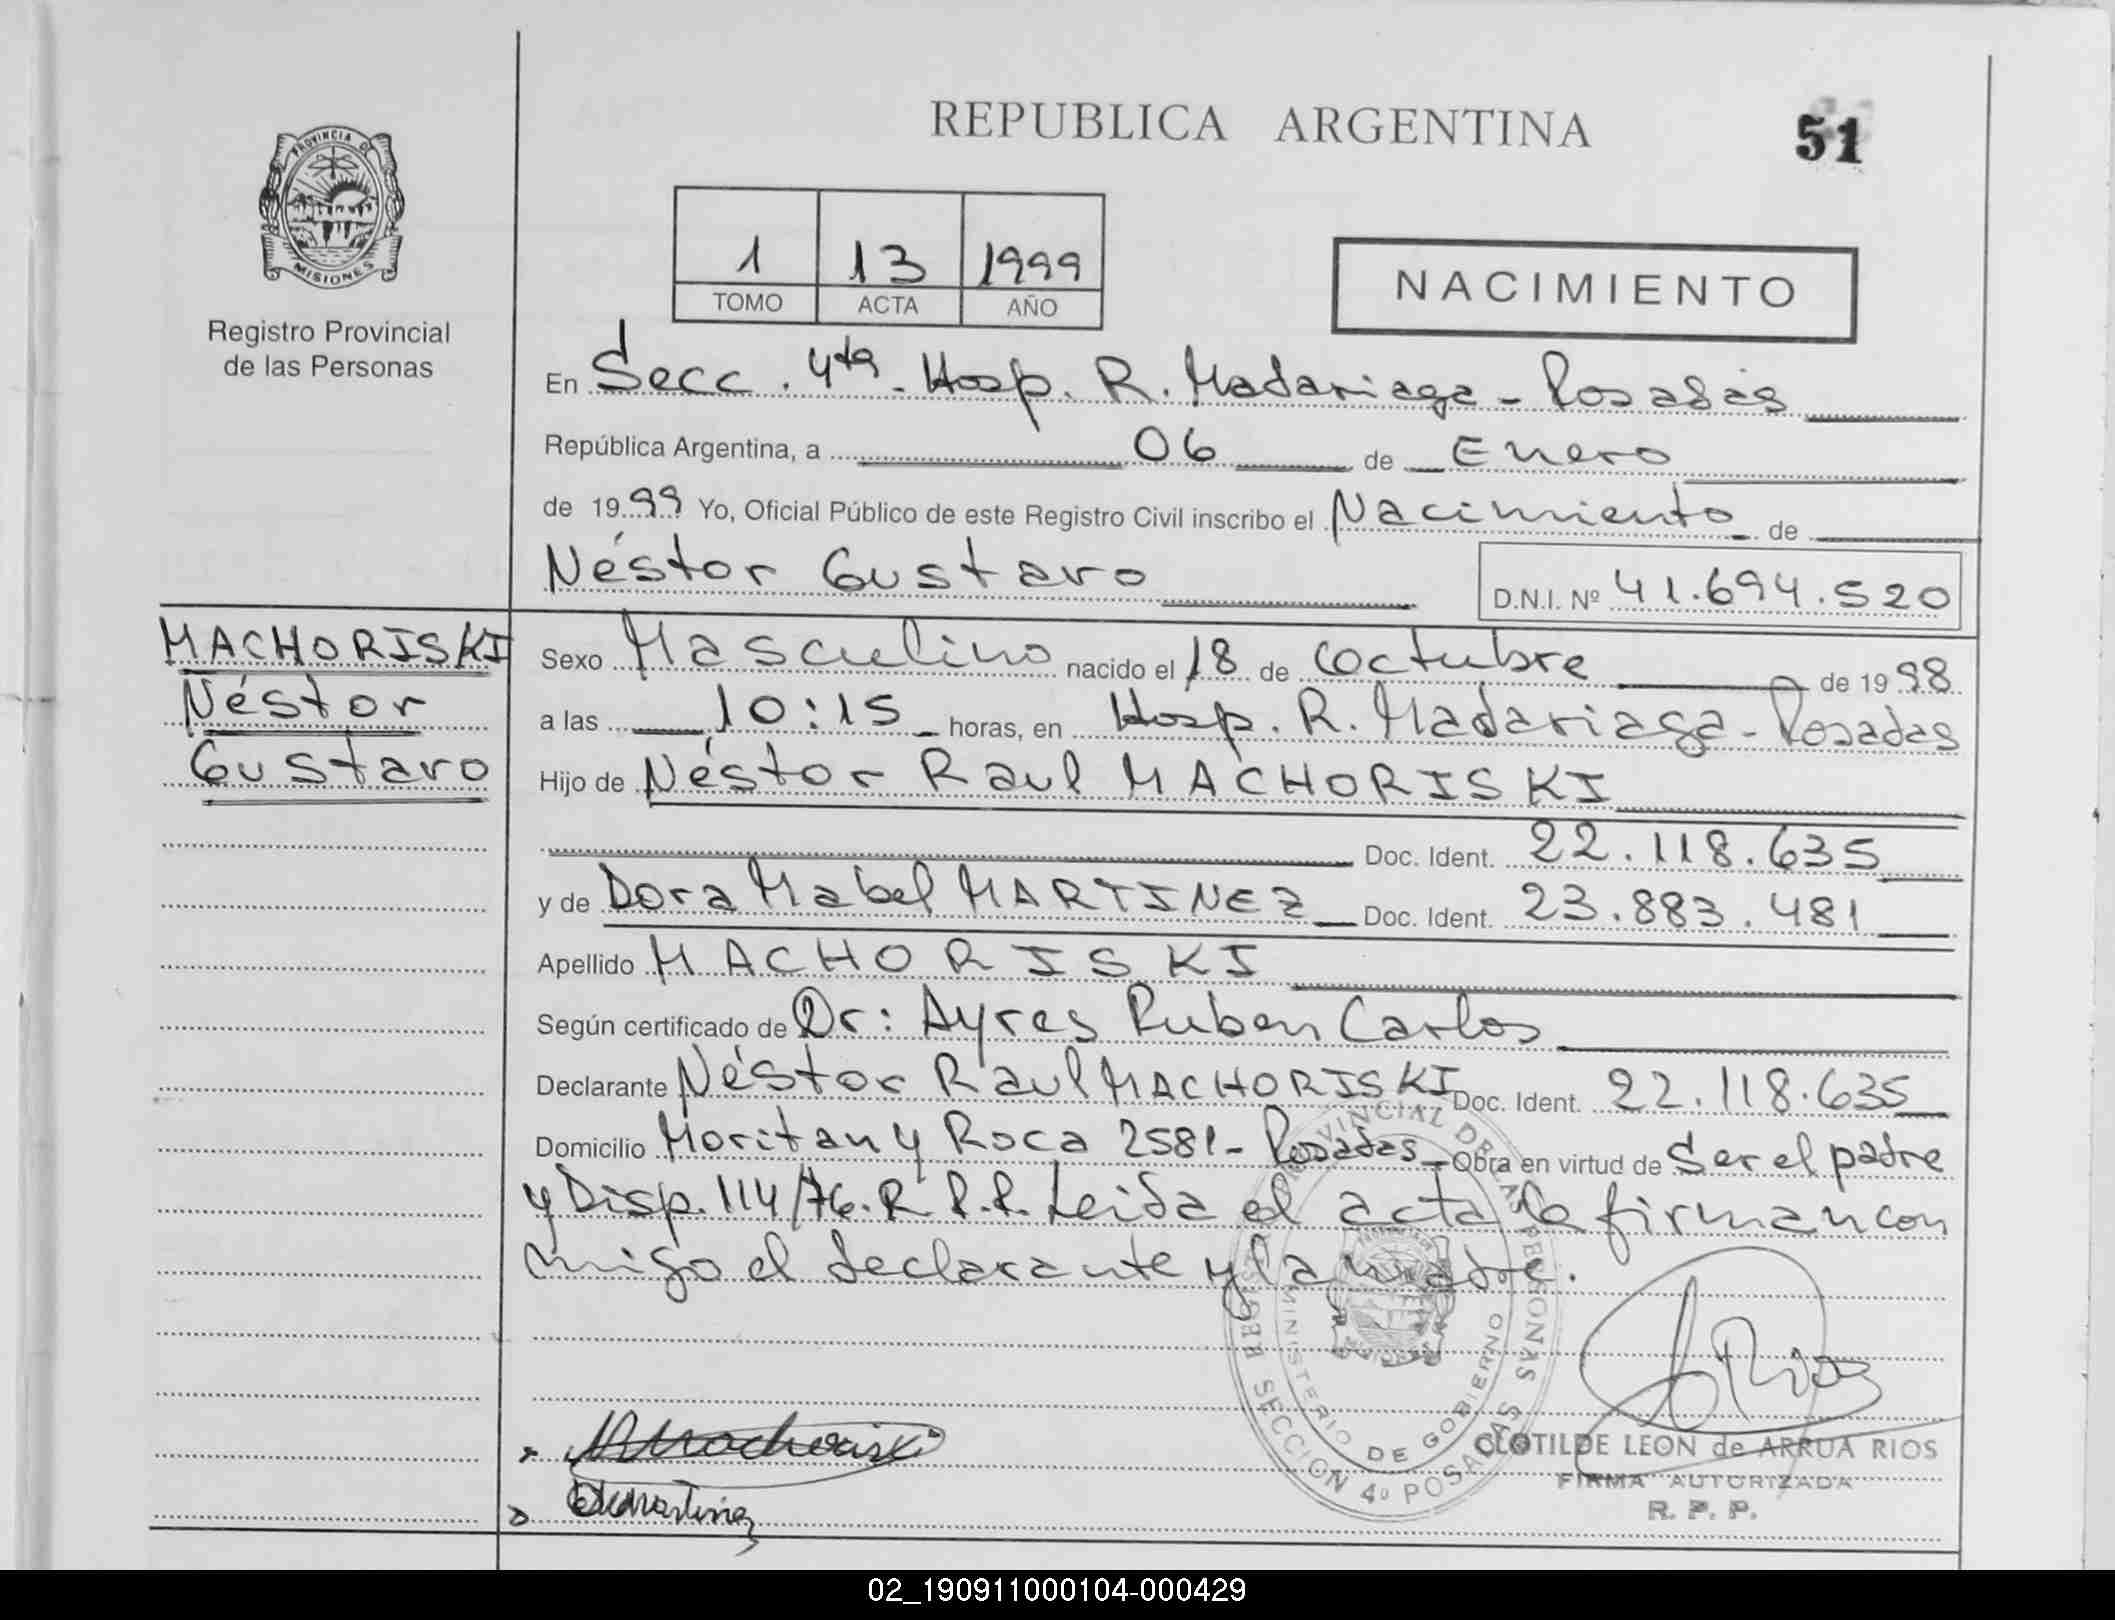 REPUBLICA ARGENTINA
51
PROVINCIA DE
MISIONES
Registro Provincial
de las Personas
1 13 1999
TOMO ACTA AÑO
NACIMIENTO
En Secc. 4ta. Hosp. R. Madariaga - Posadas
República Argentina, a 06 de Enero
de 1999 Yo, Oficial Público de este Registro Civil inscribo el Nacimiento de
Néstor Gustavo
D.N.I. Nº 41.694.520
MACHORISKI
Néstor
Gustavo
Sexo Masculino nacido el 18 de Octubre de 1998
a las 10:15 horas, en Hosp. R. Madariaga - Posadas
Hijo de Néstor Raul MACHORISKI
Doc. Ident. 22.118.635
y de Dora Mabel MARTINEZ Doc. Ident. 23.883.481
Apellido MACHORISKI
Según certificado de Dr: Ayres Ruben Carlos
Declarante Néstor Raul MACHORISKI Doc. Ident. 22.118.635
Domicilio Moritan y Roca 2581 - Posadas - Obra en virtud de Ser el padre
y Disp. 114/76. R.P.P. Leida el acta la firman con
migo el declarante y la madre.
REGISTRO PROVINCIAL DE LAS PERSONAS
MINISTERIO DE GOBIERNO
SECCION 4º POSADAS
CLOTILDE LEON de ARRUA RIOS
FIRMA AUTORIZADA
R. P. P.
02_190911000104-000429